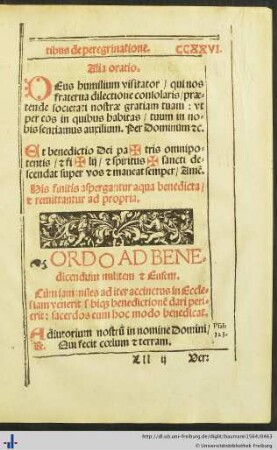 tibus de peregrinatione. CCXXVI.
Alia oratio.
DEus humilium visitator / qui nos
fraterna dilectione consolaris / præ⸗
tende societati nostræ gratiam tuam : vt
per eos in quibus habitas / tuum in no⸗
bis sentiamus auxilium. Per Dominum ꝛc.
Et benedictio Dei pa✠tris omnipo⸗
tentis / ꝛ fi✠lij / ꝛ spiritus✠sancti de⸗
scendat super vos ꝛ maneat semper / Amē.
His finitis aspergantur aqua benedicta /
ꝛ remittantur ad propria.
ORDO AD BENE
dicendum militem ꝛ Ensem.
Cùm iam ad iter accinctus in Eccle⸗
siam venerit ꝛ benedictionē dari peti⸗
erit: sacerdos eum hoc modo benedicat.
Adiutorium nostrū in nomine Domini /
R. Qui fecit cœlum ꝛ terram.
Ll ij Ver:
http://dl.ub.uni-freiburg.de/diglit/baumann1564/0463
© Universitätsbibliothek Freiburg